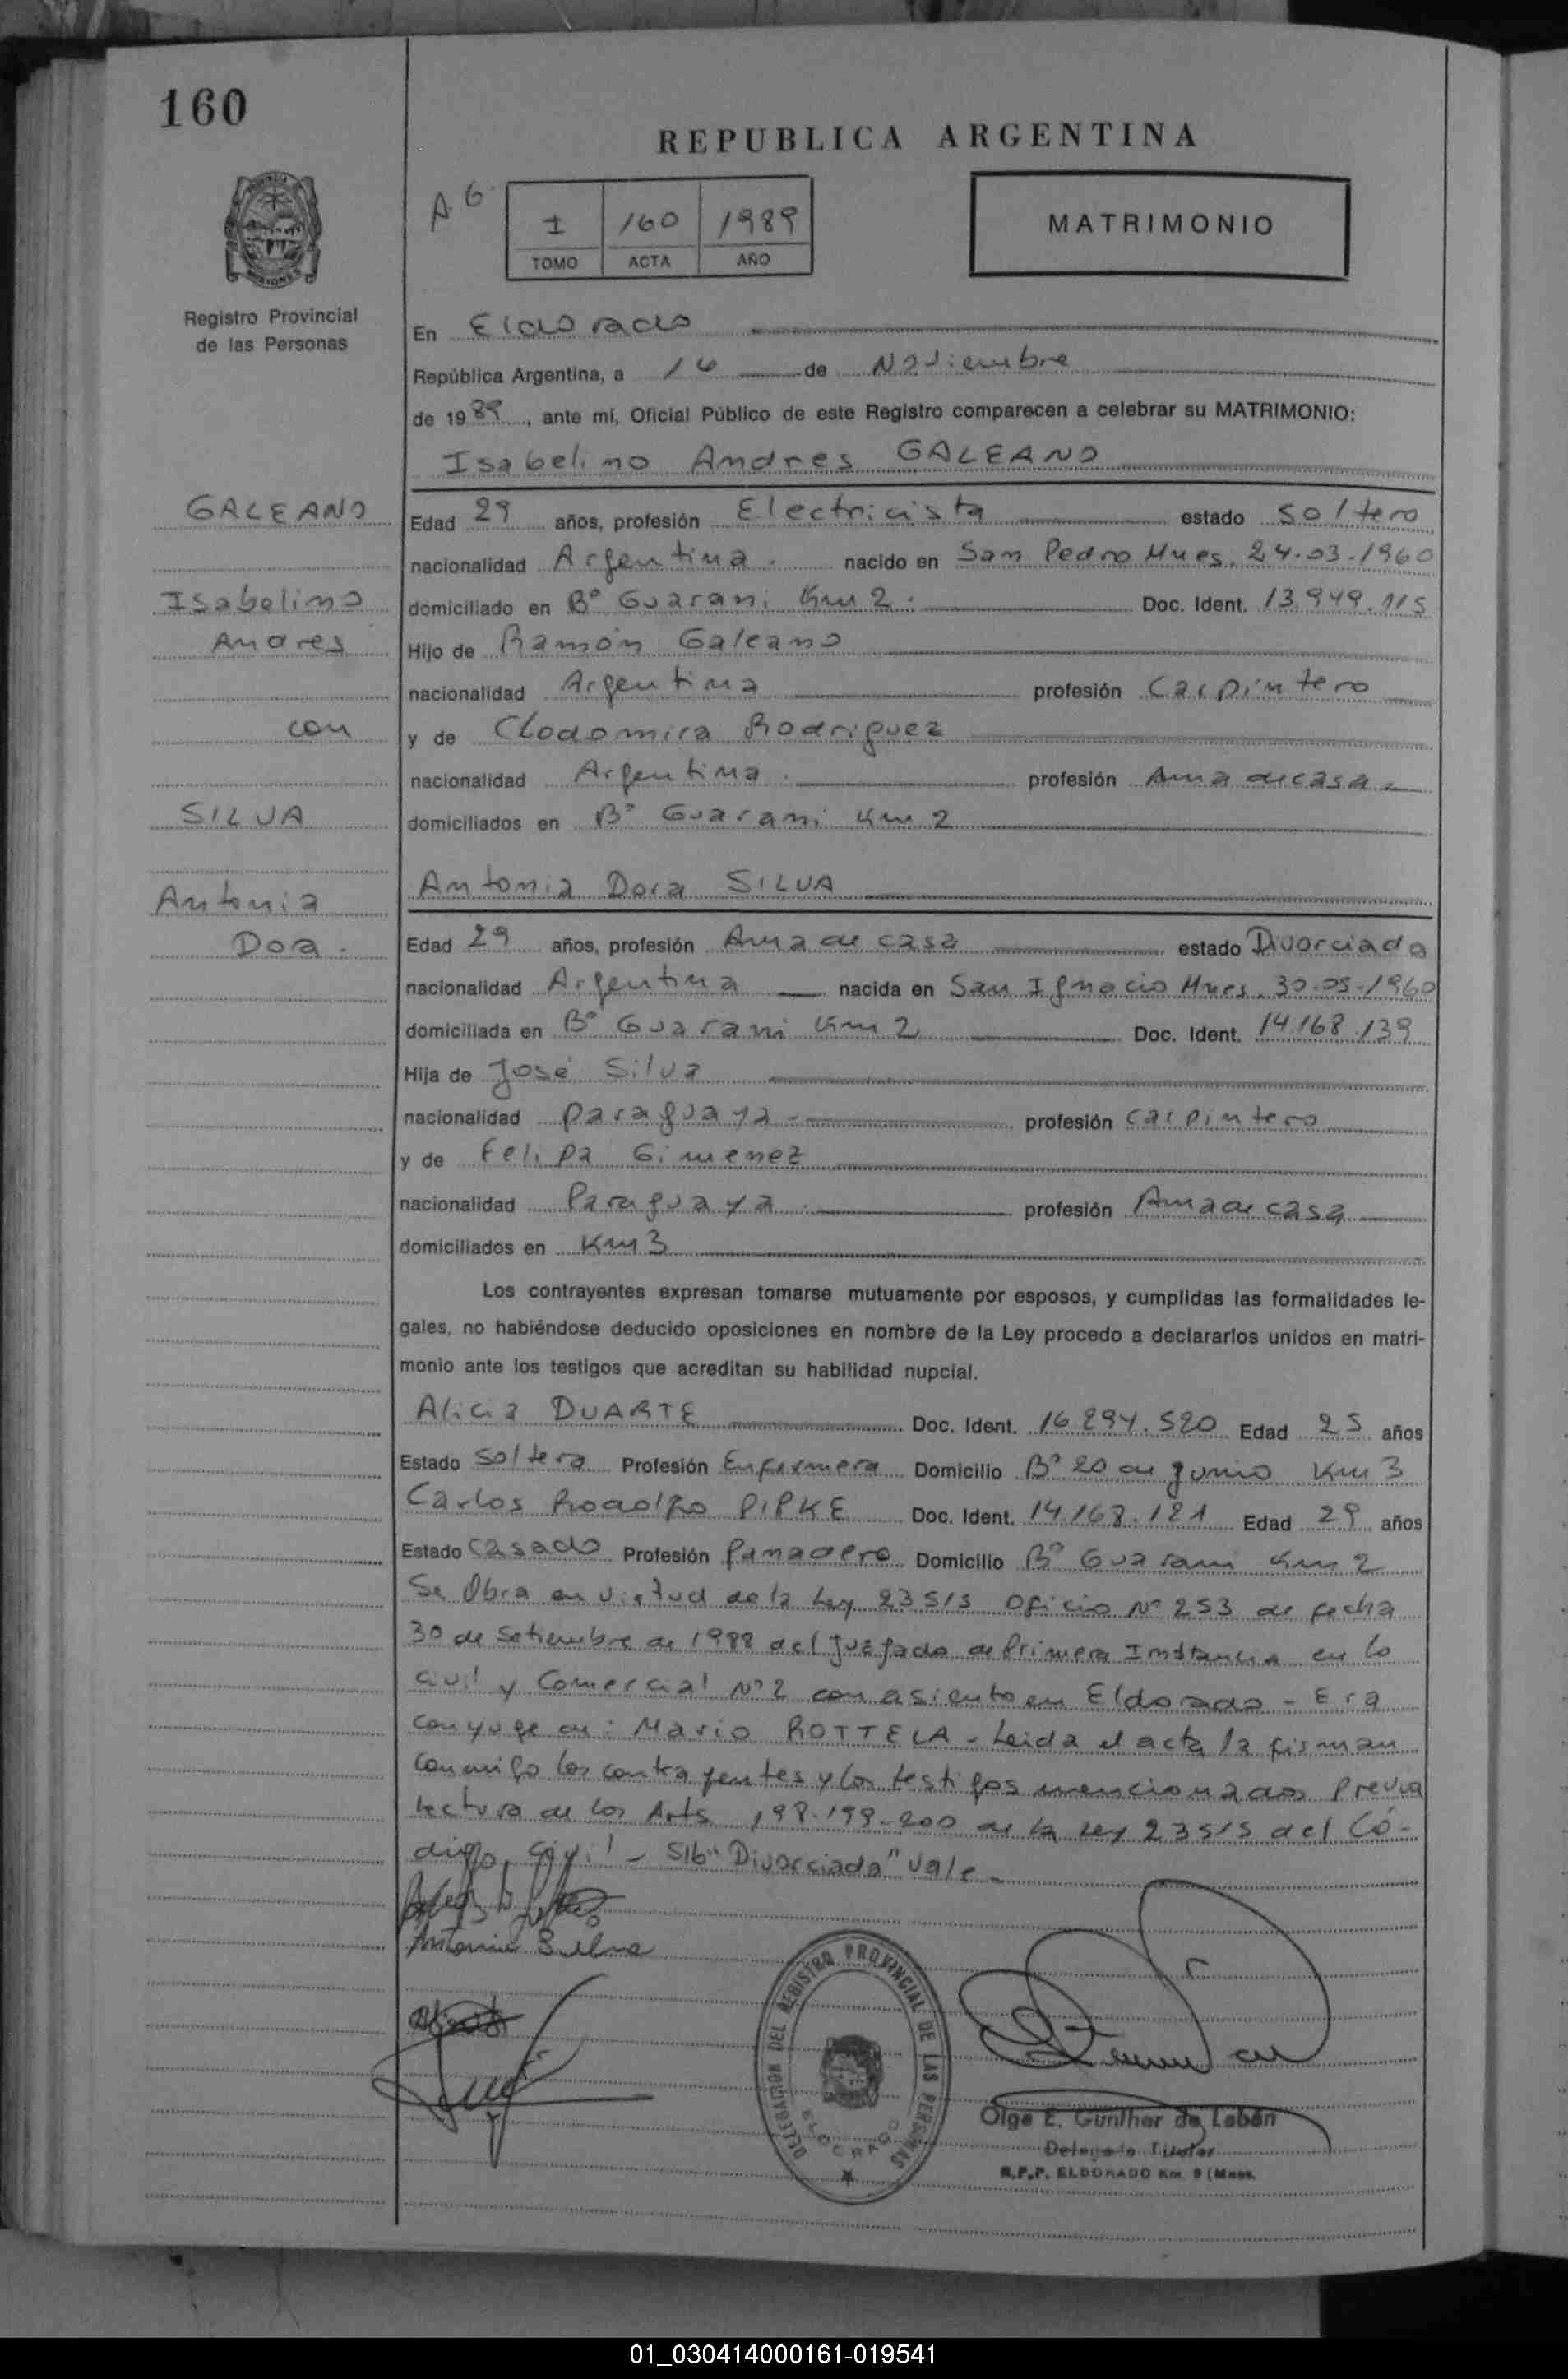 160
REPUBLICA ARGENTINA
A.6.
I 160 1989
TOMO ACTA AÑO
MATRIMONIO
Registro Provincial
de las Personas
En Eldorado
República Argentina, a 16 de Noviembre
de 1989, ante mí, Oficial Público de este Registro comparecen a celebrar su MATRIMONIO:
Isabelino Andres GALEANO
GALEANO
Isabelino
Andres
con
SILVA
Antonia
Dora.
Edad 29 años, profesión Electricista estado soltero
nacionalidad Argentina. nacido en San Pedro Mnes. 24.03.1960
domiciliado en B° Guarani Km 2. Doc. Ident. 13.949.115
Hijo de Ramón Galeano
nacionalidad Argentina profesión Carpintero
y de Clodomira Rodriguez
nacionalidad Argentina. profesión Ama de casa.
domiciliados en B° Guarani Km 2
Antonia Dora SILVA
Edad 29 años, profesión Ama de casa estado Divorciada
nacionalidad Argentina nacida en San Ignacio Mnes. 30.05.1960
domiciliada en B° Guarani Km 2 Doc. Ident. 14.168.139
Hija de José Silva
nacionalidad paraguaya. profesión carpintero
y de Felipa Gimenez
nacionalidad Paraguaya. profesión Ama de casa
domiciliados en Km 3
Los contrayentes expresan tomarse mutuamente por esposos, y cumplidas las formalidades le-
gales, no habiéndose deducido oposiciones en nombre de la Ley procedo a declararlos unidos en matri-
monio ante los testigos que acreditan su habilidad nupcial.
Alicia DUARTE Doc. Ident. 16.294.520 Edad 25 años
Estado soltera Profesión Enfermera Domicilio B° 20 de Junio Km 3
Carlos Rodolfo PIPKE Doc. Ident. 14.168.121 Edad 29 años
Estado casado Profesión Panadero Domicilio B° Guarani Km 2
Se Obra en virtud de la Ley 23515 Oficio N° 253 de fecha
30 de Setiembre de 1988 del Juzgado de Primera Instancia en lo
Civil y Comercial N° 2 con asiento en Eldorado - Era
conyuge de: Mario ROTTELA - Leida el acta la firman
conmigo los contrayentes y los testigos mencionados previa
lectura de los Arts 198-199-200 de la Ley 23515 del Có-
digo Civil - S/b "Divorciada" vale.
Antonia Silva
DELEGACION DEL REGISTRO PROVINCIAL DE LAS PERSONAS
ELDORADO
Olga E. Günther de Lebán
Delegada Titular
R.P.P. ELDORADO Km. 9 (Mnes.
01_030414000161-019541